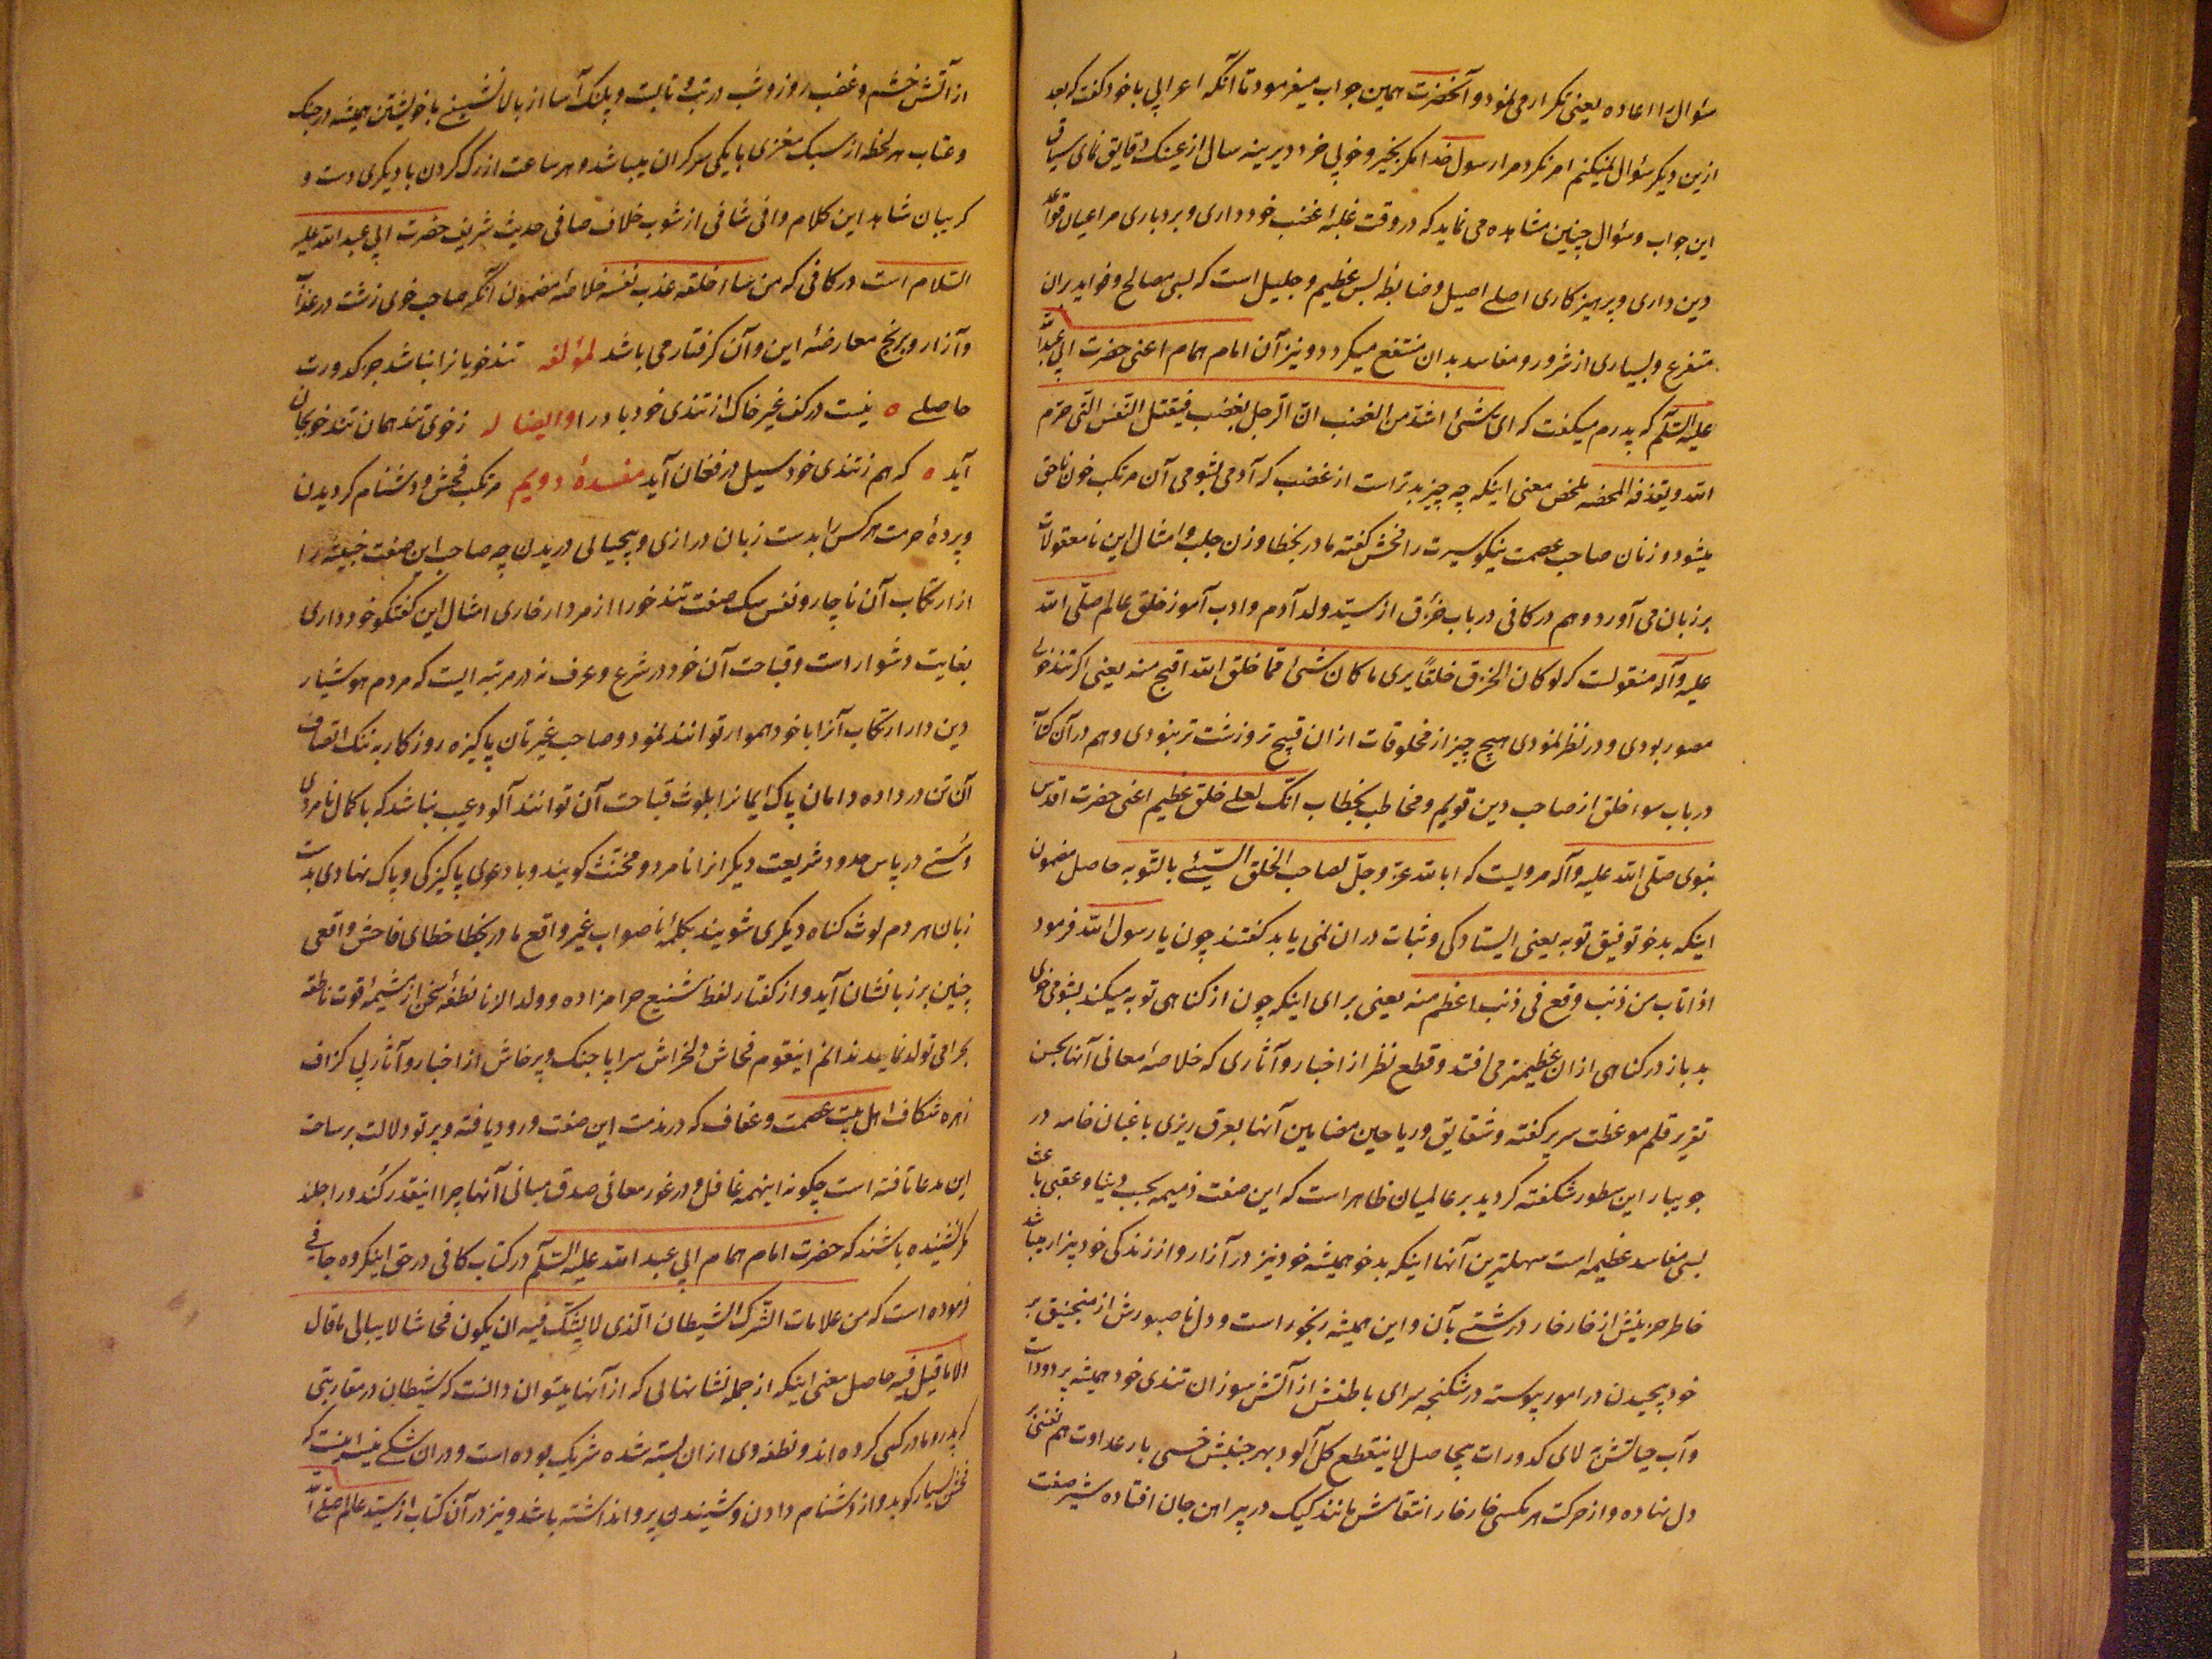 سؤال را اعاده یعنی تکرار می نمود و آنحضرت همین جواب میفرمود تا آنکه اعرابی با خود گفت که بعد
ازین دیگر سؤال نمیکنم امر نکرد مرا رسول خدا مگر بخیر و خوبی خرد دیرینه سال از عینک دقایق نمای سیاق
این جواب و سؤال چنین مشاهده می نماید که در وقت غلبهٔ غضب خودداری و بردباری مر اعیان قواعد
دین داری و پرهیزکاری اصلی اصیل و ضابطهٔ بس عظیم و جلیل است که بسی مصالح و فواید بران
متفرع و بسیاری از شرور و مفاسد بدان منتفع میگردد و نیز آن امام همام اعنی حضرت ابی عبدالله
علیه السّلم که پدرم میگفت که ای شئ اشدّ من الغضب انّ الرّجل یغضب فیقتل النّفس الّتی حرّم
الله و یقذف المحصنه ملخص معنی اینکه چه چیز بدتر است از غضب که آدمی بشومی آن مرتکب خون ناحق
میشود و زنان صاحب عصمت نیکو سیرت را فحش گفته مادر بخطا و زن جلب و امثال این نامعقولات
بر زبان می آورد و هم در کافی در باب خرق از سیّد ولد آدم و ادب آموز خلق عالم صلّی الله
علیه و آله منقولست که لو کان الخرق خلقاً یری ما کان شئ ممّا خلق الله اقبح منه یعنی اگر تندخوئی
مصور بودی و در نظر نمودی هیچ چیز از مخلوقات ازان قبیح تر و زشت تر نبودی و هم در آن کتاب
در باب سوء خلق از صاحب دین قویم و مخاطب بخطاب انّک لعلی خلق عظیم اعنی حضرت اقدس
نبوی صلّی الله علیه و آله مرویست که ابا الله عزّ و جلّ لصاحب الخلق السّیّئ بالتّوبه حاصل مضمون
اینکه بدخو توفیق توبه یعنی ایستادگی و ثبات دران نمی یابد گفتند چون یا رسول الله فرمود
اذا تاب من ذنب وقع فی ذنب اعظم منه یعنی برای اینکه چون از گناهی توبه میکند بشومی خوی
بد باز در گناهی ازان عظیمتر می افتد و قطع نظر از اخبار و آثاری که خلاصهٔ معانی آنها بحسن
تقریر قلم موعظت سریر گفته و شقایق و ریاحین مضامین آنها بعرق ریزی باغبان خامه در
جویبار این سطور شکفته گردید بر عالمیان ظاهر است که این صفت ذمیمه بحسب دنیا و عقبی باعث
بسی مفاسد عظیمه است سهلترین آنها اینکه بدخو همیشه خود نیز در آزار و از زندگی خود بیزار میباشد
خاطر حزینش از خارخار درشتی بآن و این همیشه رنجور است و دل ناصبورش از منجنیق بر
خود پیچیدن در امور پیوسته در شکنجه سرای باطنش از آتش سوزان تندی خود همیشه پر دود است
و آب حیاتش ز لای کدورات بیحاصل لاینقطع گل آلود بهر جنبش خسی بار عداوت هم نفسی بر
دل نهاده و از حرکت هر مگسی خارخار انتقامش مانند کیک در پیراهن جان افتاده شیر صفت
از آتش خشم و غضب روز و شب در تب و تابست و پلنگ آسا از بالانشینی با خویشتن همیشه در جنگ
و عتاب هر لحظه از سبک مغزی با یکی سرگران میباشد و هر ساعت از رگ گردن با دیگری دست و
گریبان شاهد این کلام وافی شافی از شوب خلاف صافی حدیث شریف حضرت ابی عبدالله علیه
السّلام است در کافی که من ساء خلقه عذب نفسه خلاصهٔ مضمون آنکه صاحب خوی زشت در عذاب
و آزار و برنج معارضهٔ این و آن گرفتار می باشد لمؤلفه تندخویانرا نباشد جز کدورت
حاصلی ه نیست در کف غیر خاک از تندی خود باد را و ایضاً له ز خوی تند همان تندخو بجان
آید ه که هم ز تندی خود سیل در فغان آید مفسدهٔ دویم مرتکب فحش و دشنام گردیدن
و پردهٔ حرمت هر کس را بدست زبان درازی و بیحیائی دریدن چه صاحب این صفت خبیثه را
از ارتکاب آن ناچار و نفس سگ صفت تندخو را از مردارخاری امثال این گفتگو خودداری
بغایت دشوار است و قباحت آن خود در شرع و عرف نه در مرتبه ایست که مردم هوشیار
دین دار ارتکاب آنرا با خود هموار توانند نمود و صاحب غیرتان پاکیزه روزگار به ننگ اتصاف
آن تن در داده دامان پاک ایمانرا بلوث قباحت آن توانند آلود عجب نباشد که با کمال نامردی
و سستی در پاس حدود شریعت دیگرانرا نامرد و مخنّث گویند و با دعوی پاکیزگی و پاک نهادی بدست
زبان هر دم لوث گناه دیگری شویند بکلمهٔ ناصواب غیر واقع مادر بخطا خطای فاحش واقعی
چنین بر زبانشان آید و از گفتار لفظ شنیع حرامزاده و ولد الزنا نطفهٔ سخن از مشیمهٔ قوت ناطقه
بحرامی تولد نماید ندانم اینقوم فحاش دلخراش سراپا جنگ و پرخاش از اخبار و آثار بی گزاف
زهره شکاف اهل بیت عصمت و عفاف که در مذمت این صفت ورود یافته و پرتو دلالت بر ساحت
این مدعا تافته است چگونه اینهمه غافل و در غور معانی صدق مبانی آنها چرا اینقدر کند و راجلند
مگر نشنیده باشند که حضرت امام همام ابی عبد الله علیه السّلم در کتاب کافی در حق اینگروه جافی
فرموده است که من علامات الشّرک الشیطان الّذی لا یشکّ فیه ان یکون فحاشا لا یبالی ما قال
و لا ما قیل فیه حاصل معنی اینکه از جمله نشانهائی که از آنها میتوان دانست که شیطان در مقاربتی
که پدر و مادر کسی کرده اند و نطفهٔ وی ازان بسته شده شریک بوده است و دران شکی نیست اینست که
فحش بسیار گوید و از دشنام دادن و شنیدن پروا نداشته باشد و نیز در آن کتاب از سیّد عالم صلّی الله